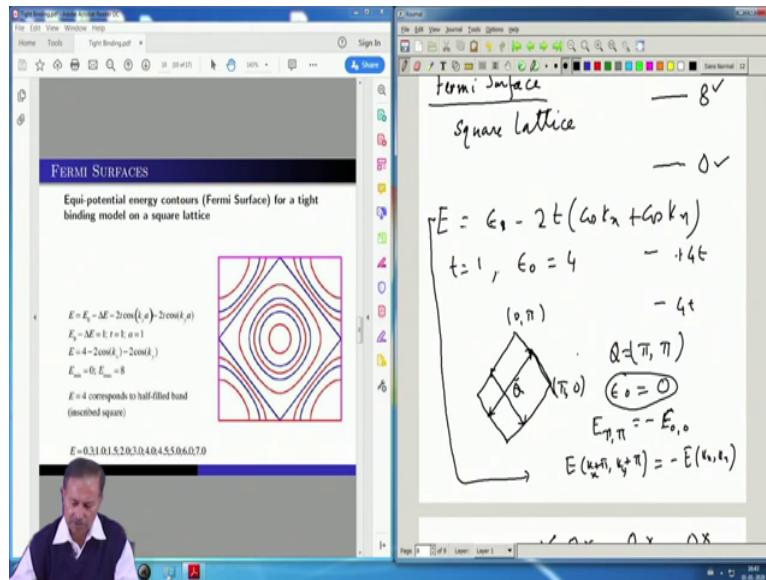 Tight Binding.pdf - Adobe Acrobat Reader DC
File Edit View Window Help
Home Tools Tight Binding.pdf × Sign In
Share
FERMI SURFACES
Equi-potential energy contours (Fermi Surface) for a tight
binding model on a square lattice
E = E₀ − ΔE − 2t cos(kₓa) − 2t cos(k_ya)
E₀ − ΔE = 1; t = 1; a = 1
E = 4 − 2cos(kₓ) − 2cos(k_y)
E_min = 0; E_max = 8
E = 4 corresponds to half-filled band
(inscribed square)
E = 0.3;1.0;1.5;2.0;3.0;4.0;4.5;5.0;6.0;7.0
Journal
File Edit View Journal Tools Options Help
Sans Normal 12
Fermi Surface
Square Lattice
— 8 ✓
— 0 ✓
E = ϵ₀ − 2t (Cos kₓ + Cos k_y)
t=1, ϵ₀ = 4
− +4t
− 4t
(0, π)
Q=(π, π)
Q
(π, 0)
ϵ₀ = 0
E_π,π = − E_0,0
E(kₓ+π, k_y+π) = − E(kₓ, k_y)
Page 8 of 8 Layer: Layer 1
16:43